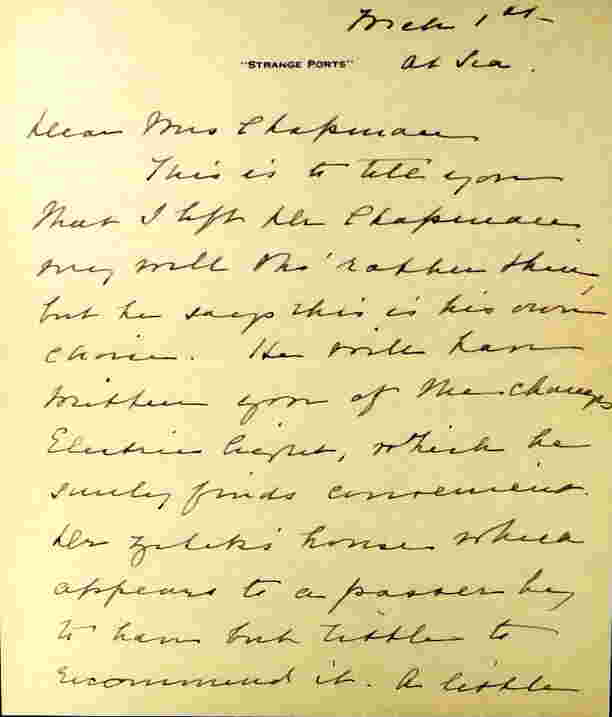 Mch 1st
"STRANGE PORTS" At Sea.
Dear Mrs Chapman
This is to tell you
that I left Dr Chapman
very well tho' rather thin,
but he says this is his own
choice. He will have
written you of the changes
Electric light, which he
surely finds convenient.
Dr house which
appears to a passer by
to have but little to
recommend it. A little